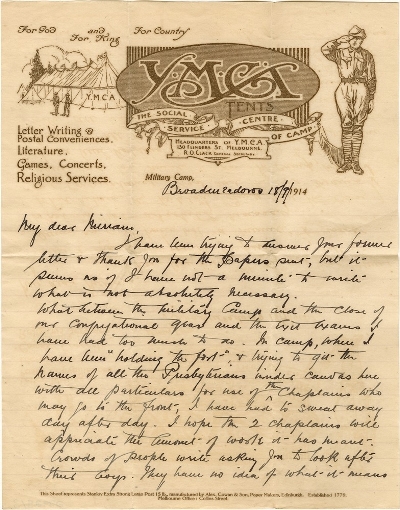 For God and For King For Country
Y.M.C.A
TENTS
Y M C A
THE SOCIAL SERVICE CENTRE OF CAMP
Letter Writing &
Postal Conveniences,
Literature,
Games, Concerts,
Religious Services.
HEADQUARTERS OF Y.M.C.A.
MELBOURNE.
Military Camp,
Broadmeadows 18/9/1914
My dear Merriam,
I have been trying to answer your former
letter & thank you for the Papers sent, but it
seems as if I have not a minute to write
what is not absolutely necessary.
What between the Military Camp and the close of
our Congregational year and the I
have had too much to do. In camp, where I
have been "holding the fort", & trying to get the
names of all the Presbyterians under canvas here
with all particulars for use of the Chaplains who
may go to the front, I have had to sweat away
day after day. I hope the 2 chaplains will
appreciate the amount of work it has meant.
Crowds of people write asking you to look after
their boys. They have no idea of what it means
This Sheet represents Extra Strong Letter Post manufactured by Alex. Cowan & Son, Paper Makers, Edinburgh. Established 1779.
Melbourne Office: Collins Street